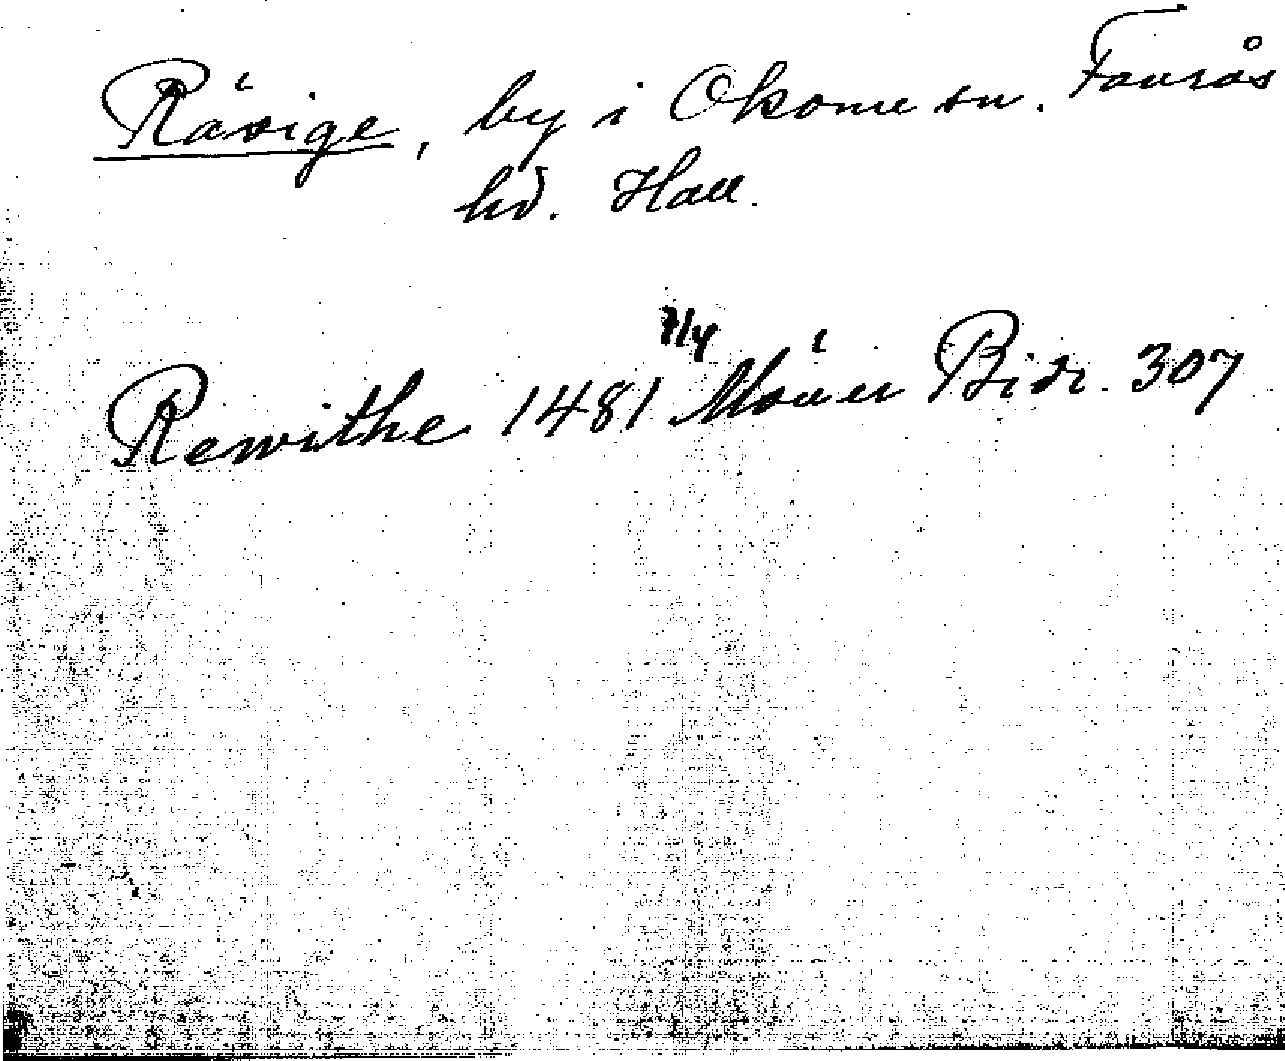 Rävige, by i Okome sn. Faurås
hd. Hall.
Rewithe 1481 7/4 Möller Bidr. 307